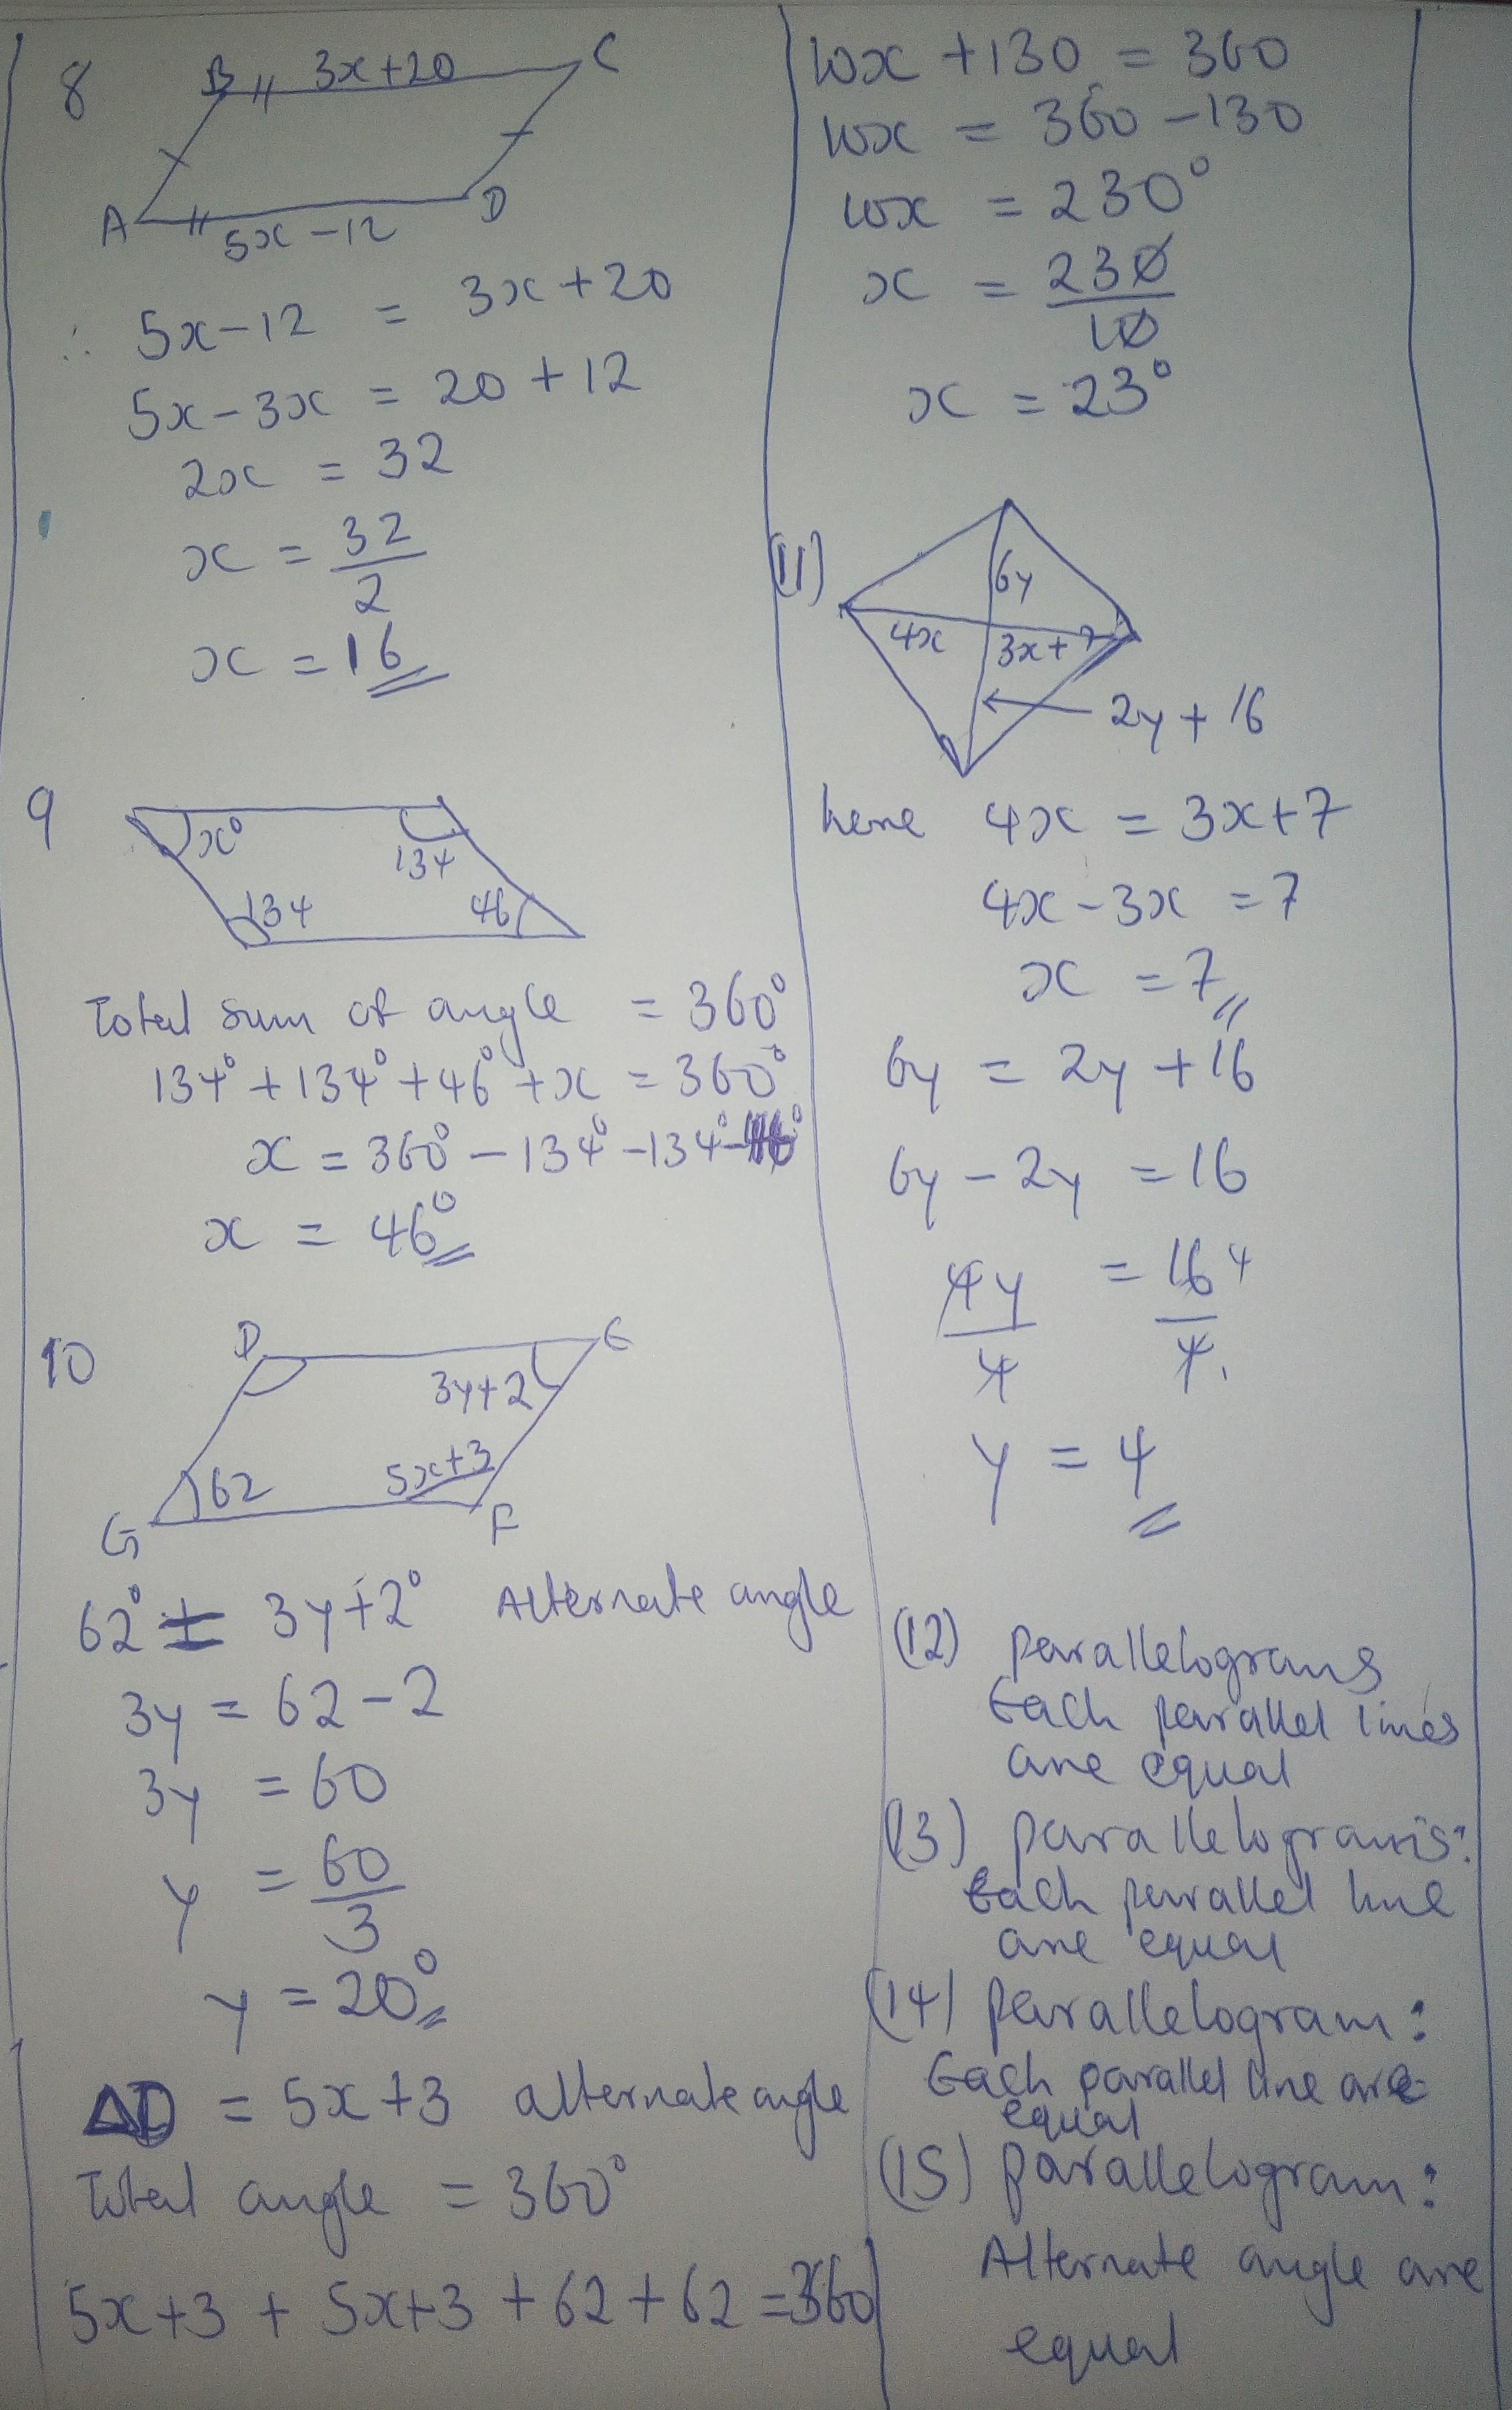 8
B 3x+20 C
A 5x-12 D
∴ 5x-12 = 3x+20
5x-3x = 20+12
2x = 32
x = 32/2
x = 16
9
x° 134
134 46
Total sum of angle = 360°
134°+134°+46°+x = 360°
x = 360°-134°-134°-46°
x = 46°
10
D E
3y+2
62 5x+3
G F
62° = 3y+2° Alternate angle
3y = 62-2
3y = 60
y = 60/3
y = 20°
D = 5x+3 alternate angle
Total angle = 360°
5x+3+5x+3+62+62=360
10x+130 = 360
10x = 360-130
10x = 230°
x = 230/10
x = 23°
(11)
6y
4x 3x+7
2y+16
here 4x = 3x+7
4x-3x = 7
x = 7
6y = 2y+16
6y-2y = 16
4y/4 = 16/4 4
y = 4
(12) parallelograms
Each parallel lines
are equal
(13) parallelograms:
Each parallel line
are equal
(14) parallelogram:
Each parallel line are
equal
(15) parallelogram:
Alternate angle are
equal